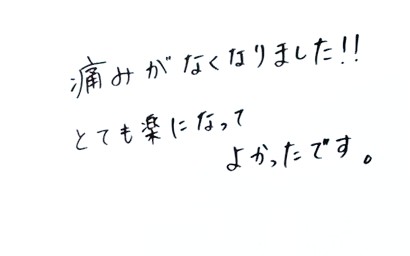 痛みがなくなりました!!
とても楽になって
よかったです。